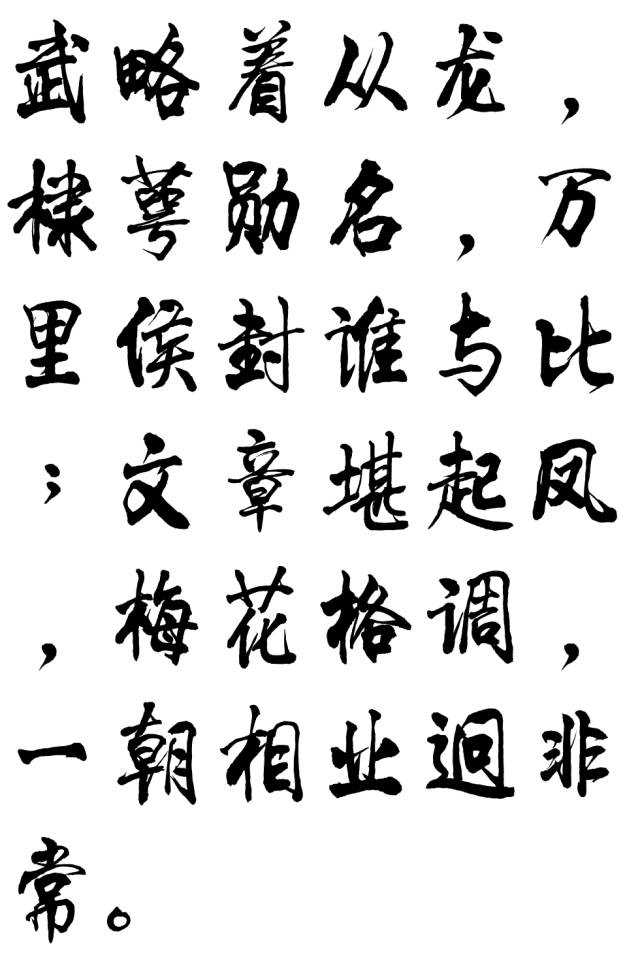 武略着从龙，
棣萼勋名，万
里侯封谁与比
；文章堪起凤
，梅花格调，
一朝相业迥非
常。